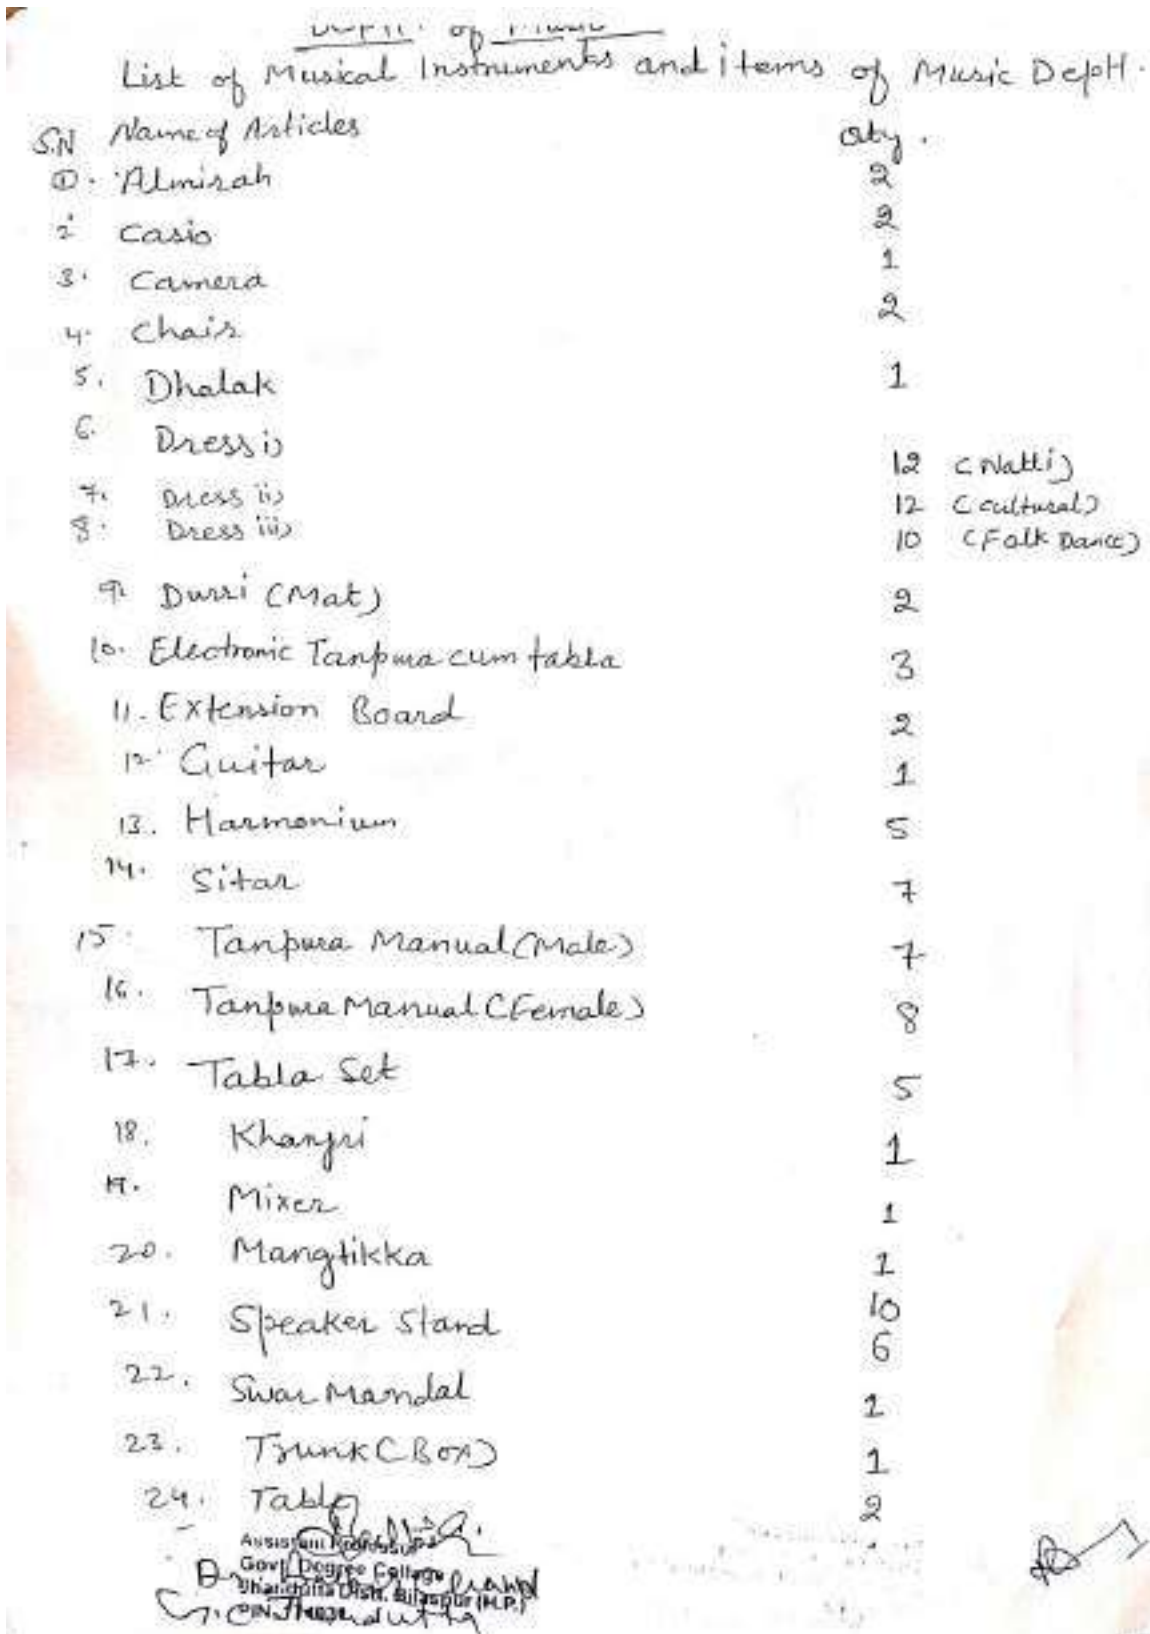 Deptt. of Music
List of Musical Instruments and items of Music Deptt.
S.N Name of Articles Qty.
1. Almirah 2
2. Casio 2
3. Camera 1
4. Chair 2
5. Dhalak 1
6. Dress i) 12 (Natti)
7. Dress ii) 12 (cultural)
8. Dress iii) 10 (Folk Dance)
9. Durri (Mat) 2
10. Electronic Tanpura cum tabla 3
11. Extension Board 2
12. Guitar 1
13. Harmonium 5
14. Sitar 7
15. Tanpura Manual (Male) 7
16. Tanpura Manual (Female) 8
17. Tabla Set 5
18. Khanjri 1
19. Mixer 1
20. Mangtikka 1
21. Speaker Stand 10
6
22. Swar Mandal 1
23. Trunk (Box) 1
24. Table 2
Assistant Professor
Govt. Degree College
Jhandutta Distt. Bilaspur (H.P.)
G.C. Jhandutta